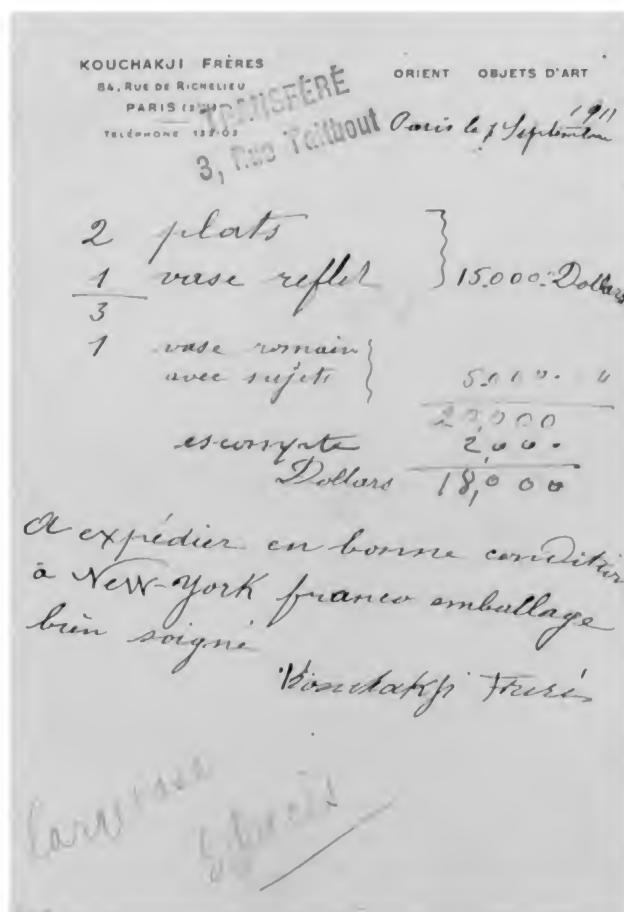 KOUCHAKJI FRÈRES
84, RUE DE RICHELIEU
PARIS
TÉLÉPHONE
ORIENT OBJETS D'ART
TRANSFÉRÉ
3, Rue Taitbout
1911
Paris le 7 Septembre
2 plats
1 vase reflet 15.000. Dollars
3
1 vase romain
avec sujets 5.000. "
20,000
escompte 2,000
Dollars 18,000
A expédier en bonne condition
à New-York franco emballage
bien soigné
Kouchakji Frères
Large vase